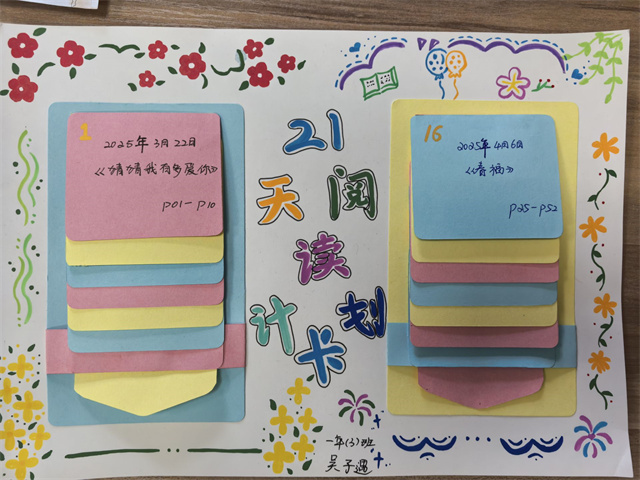 21
天阅
读
计划
卡
1
2025年3月22日
《猜猜我有多爱你》
P01-P10
16
2025年4月6日
P25-P52
一年(3)班
吴子遇